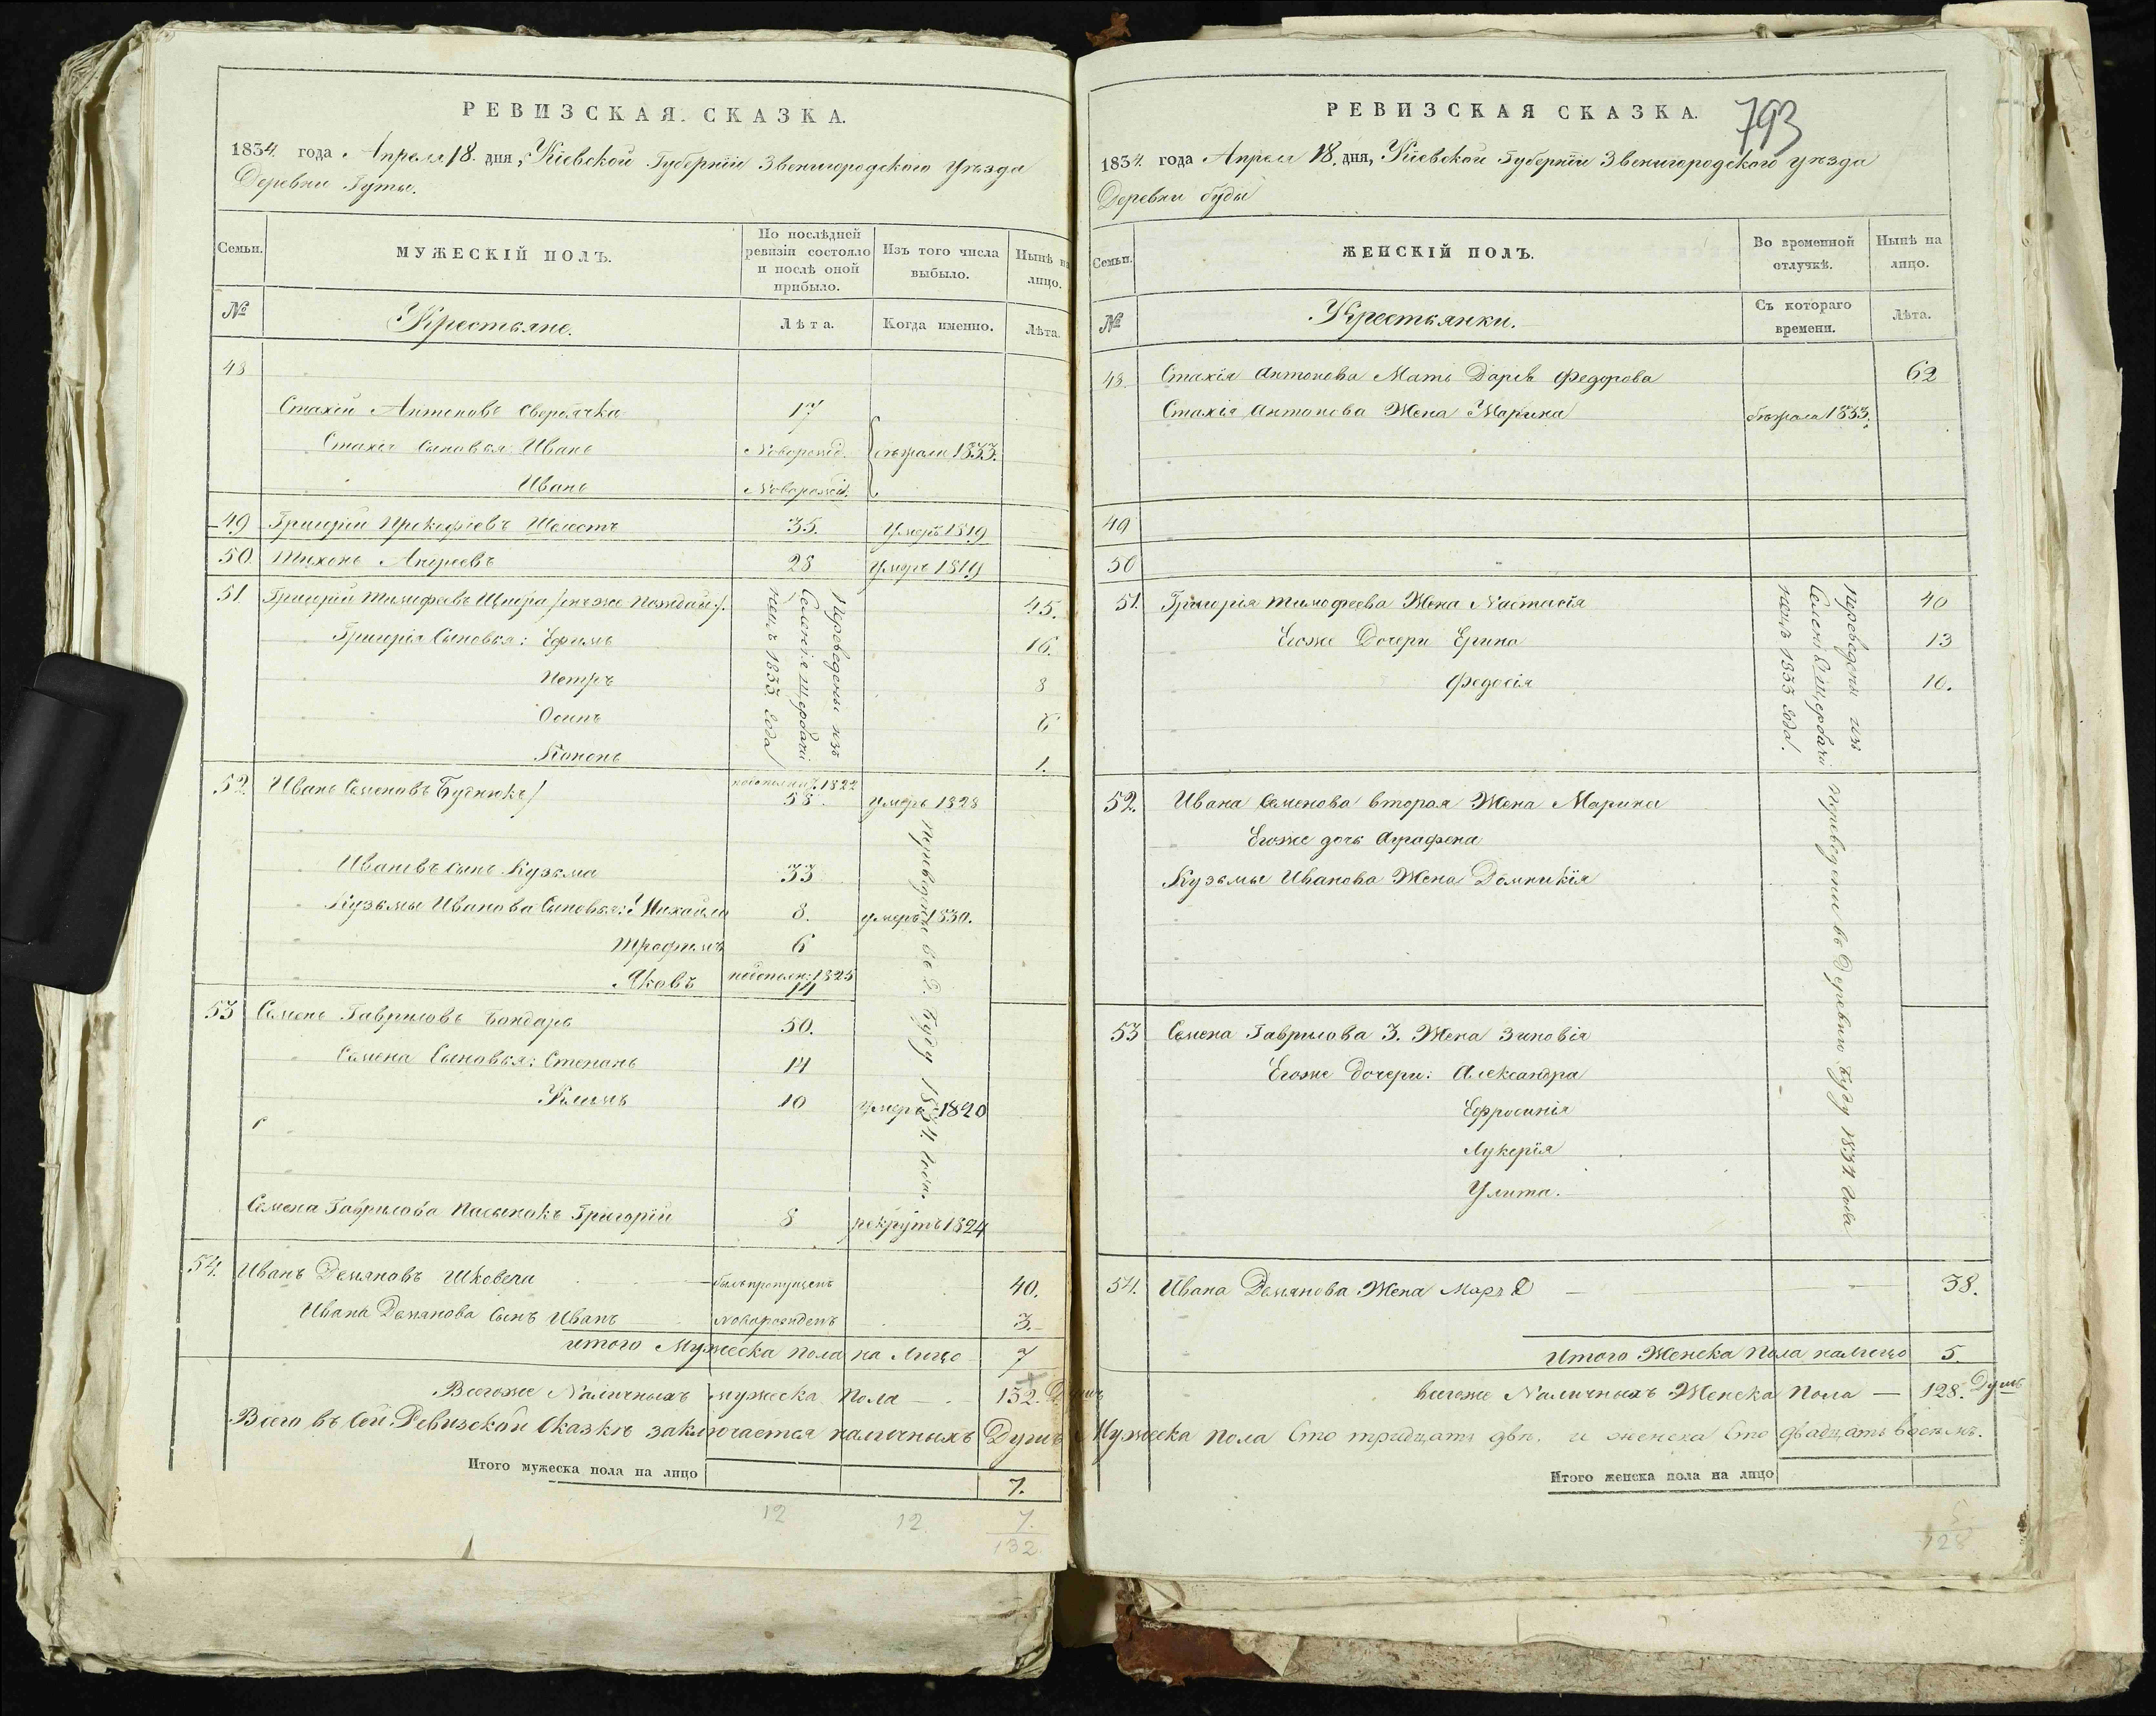 РЕВИЗСКАЯ СКАЗКА.
1834 года Апреля 18. дня, Кіевской Губерніи Звенигородского Уѣзда
Деревни Гуты.
Семьи.
МУЖЕСКІЙ ПОЛЪ.
По послѣдней ревизіи состояло и послѣ оной прибыло.
Изъ того числа выбыло.
Нынѣ на лицо.
№
Крестьяне.
Лѣта.
Когда именно.
Лѣта.
48
Стахій Антоновъ 17
Стахія Сыновья: Иванъ Новорожд. бѣжали 1833.
Иванъ Новорожд.
49 Григорій Прокофіевъ Шелестъ 35. Умеръ 1819
50. Тихонъ Андреевъ 28 Умеръ 1819
51. Григорій Тимофеевъ 45.
Григорія Сыновья: Ефимъ 16.
Петръ 8
Осипъ 6
Кононъ 1.
Переведены изъ
Селенія
1833 года
52. Иванъ Семеновъ Будникъ 1822
58. умеръ 1828
Ивановъ сынъ Кузьма 33
Кузьмы Иванова Сыновья: Михайло 8. умеръ 1830.
Трофимъ 6
Яковъ 1825
14
53 Семенъ Гавриловъ Бондарь 50.
Семена Сыновья: Степанъ 14
Климъ 10 умеръ 1820
Семена Гаврилова Пасынокъ Григорій 8 рекрутъ 1824
Переведены въ д. Буду 1834. года.
54. Иванъ Демяновъ былъ пропущенъ 40.
Ивана Демянова Сынъ Иванъ новорожденъ 3.
итого Мужеска пола на лицо 7
Всегоже Наличныхъ мужеска пола — 132. Душъ
Всего въ сей Ревизской Сказкѣ заключается наличныхъ Душъ Мужеска пола Сто тридцать двѣ. и женска Сто двадцать восемь.
Итого мужеска пола на лицо 7.
12 12 7.
132.
РЕВИЗСКАЯ СКАЗКА.
793
1834. года Апреля 18. дня, Кіевской Губерніи Звенигородского уѣзда
Деревни буды
Семьи.
ЖЕНСКІЙ ПОЛЪ.
Во временной отлучкѣ.
Нынѣ на лицо.
№
Крестьянки.
Съ котораго времени.
Лѣта.
48. Стахія Антонова Мать Дарья Федорова 62
Стахія Антонова Жена Марина бѣжала 1833.
49
50
51. Григорія Тимофеева Жена Настасія 40
Егоже Дочери Ерина 13
Федосія 10.
Переведены изъ
1833 года.
52. Ивана Семенова вторая Жена Марина
Егоже дочь Аграфена
Кузьмы Иванова Жена Домникія
53 Семена Гаврилова 3. Жена Зиновія
Егоже Дочери: Александра
Ефросинія
Лукерія
Улита.
Переведены въ Деревню Буду 1834 года
54. Ивана Демянова Жена 38.
Итого Женска Пола на лицо 5.
всегоже Наличныхъ Женска Пола — 128. Душъ
Итого женска пола на лицо
5
128